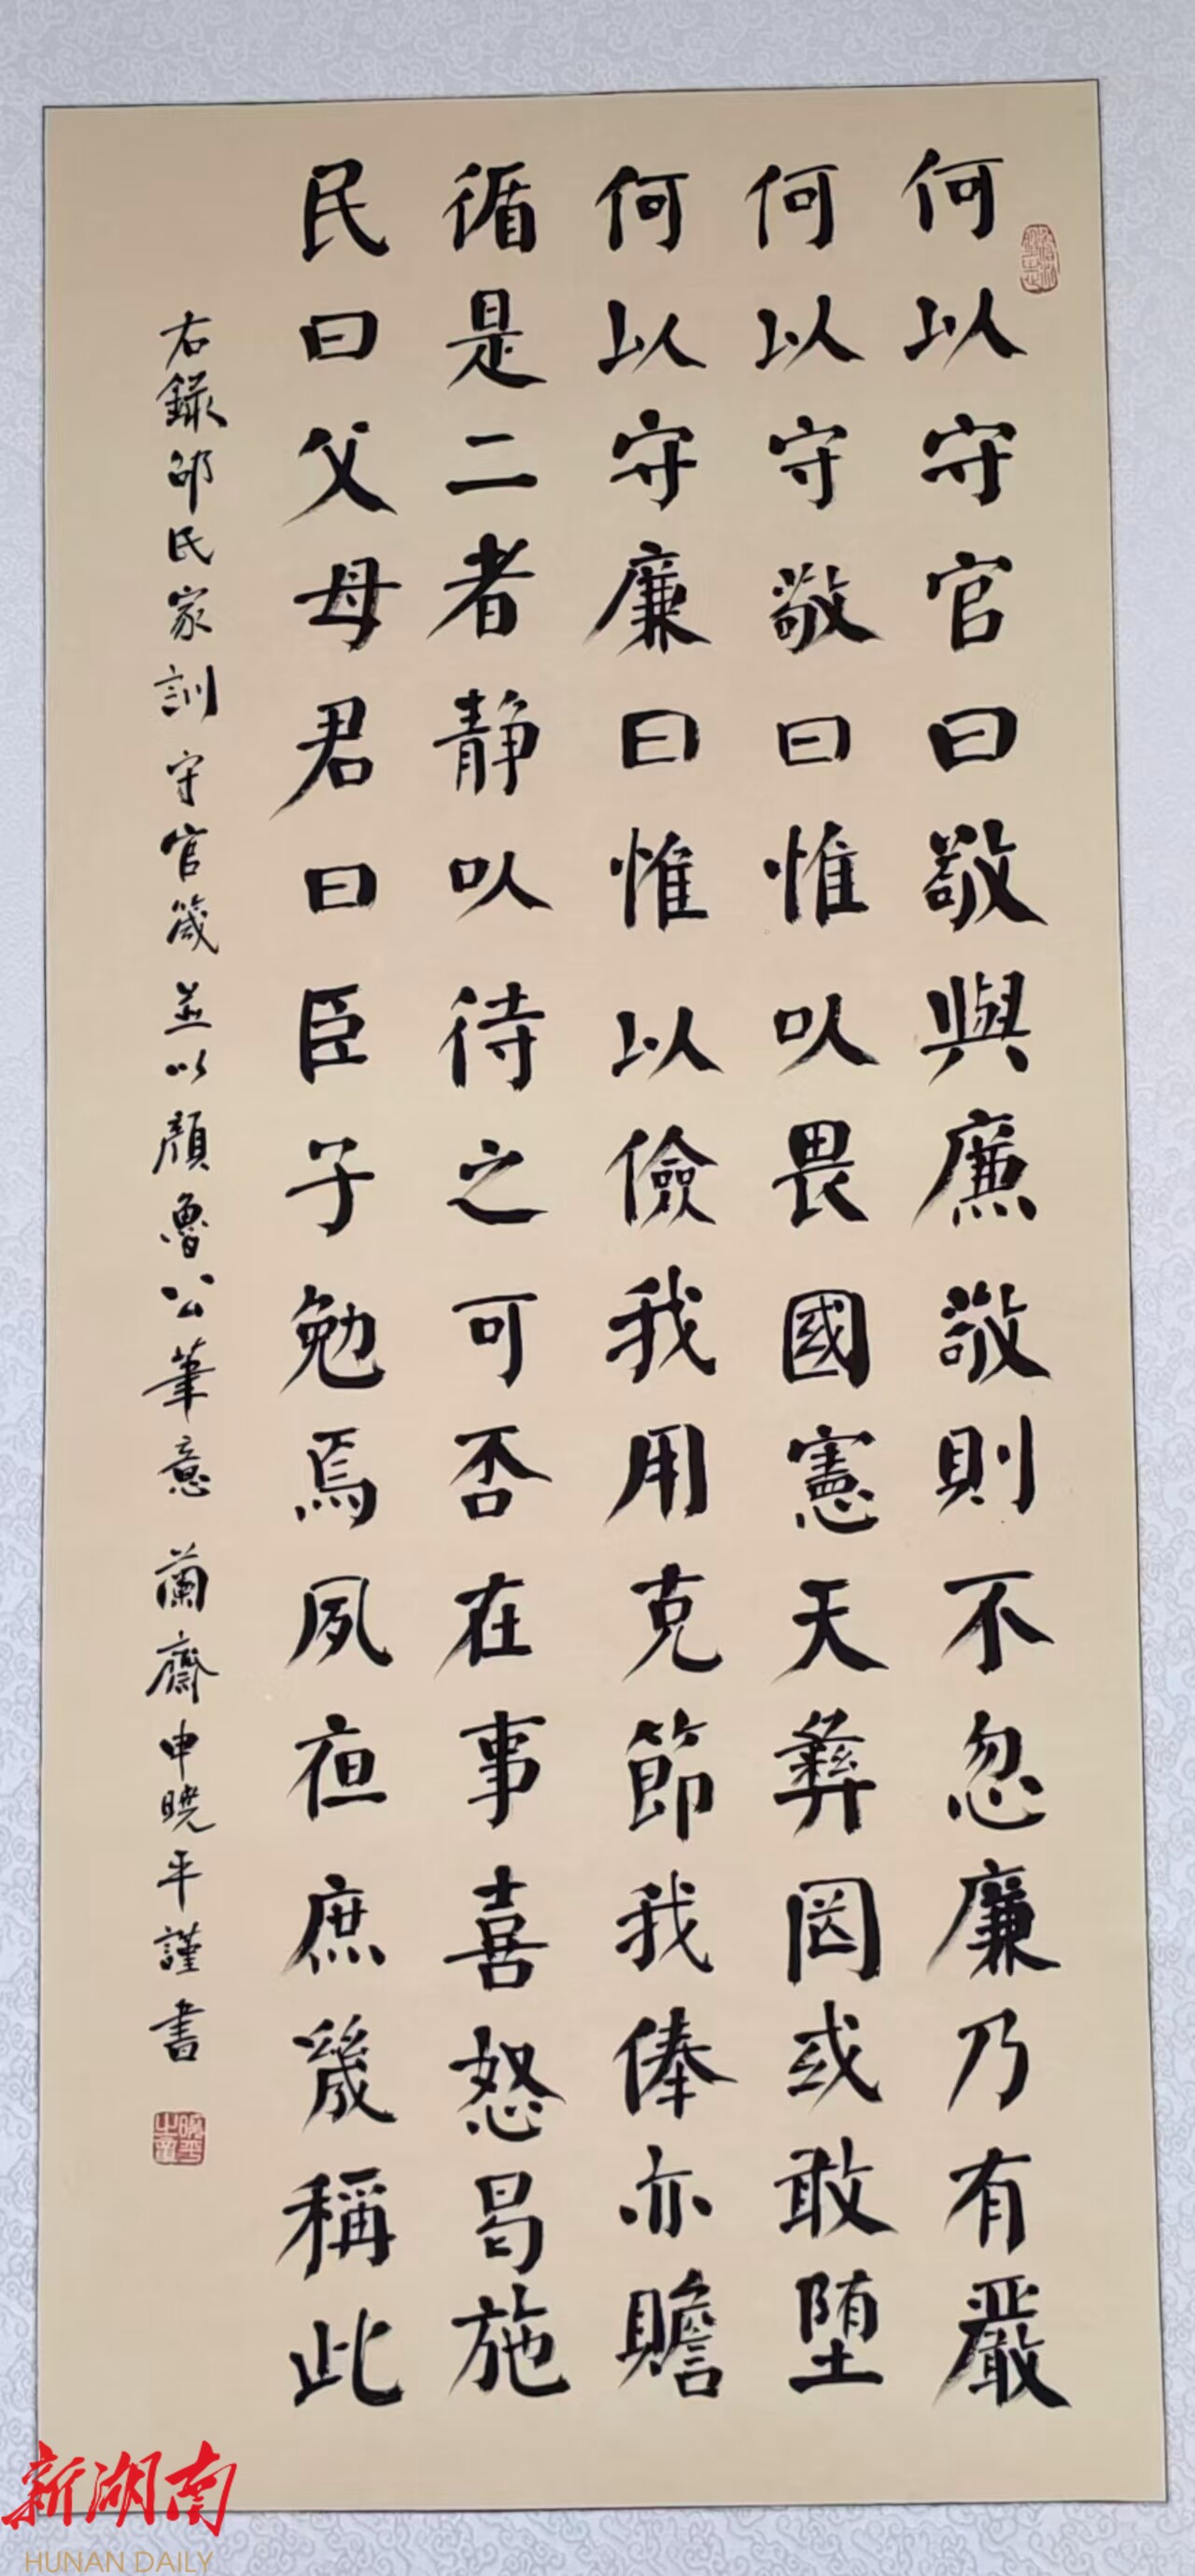 何以守官曰敬與廉敬則不忽廉乃有嚴
何以守敬曰惟以畏國憲天彝罔或敢墮
何以守廉曰惟以儉我用克節我俸亦贍
循是二者靜以待之可否在事喜怒曷施
民曰父母君曰臣子勉焉夙夜庶幾稱此
右録邵氏家訓守官箴並以顏魯公筆意蘭齋申曉平謹書
新湖南
HUNAN DAILY